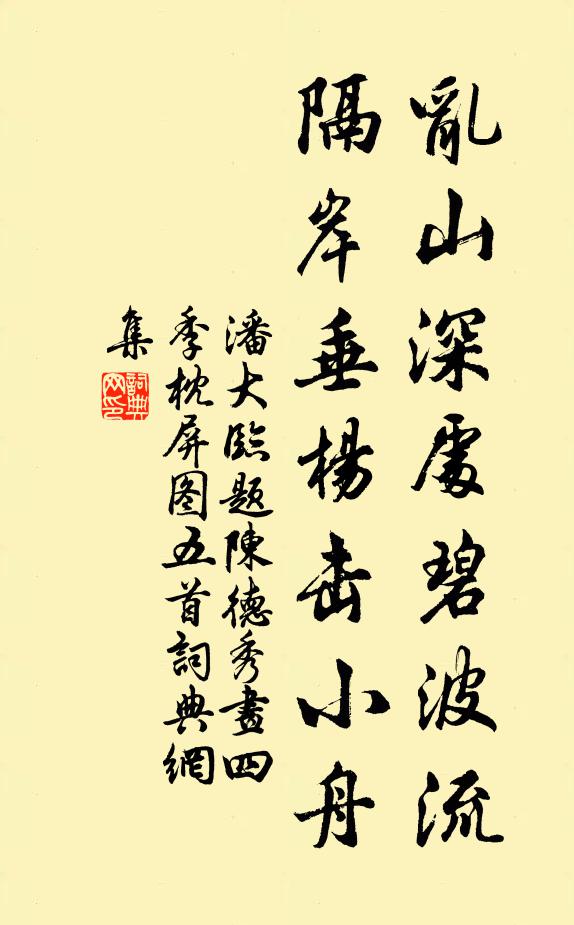 亂山深處碧波流
隔岸垂楊击小舟
潘大臨题陳德秀畫四
季枕屏图五首詞典網
集
詞典
网印